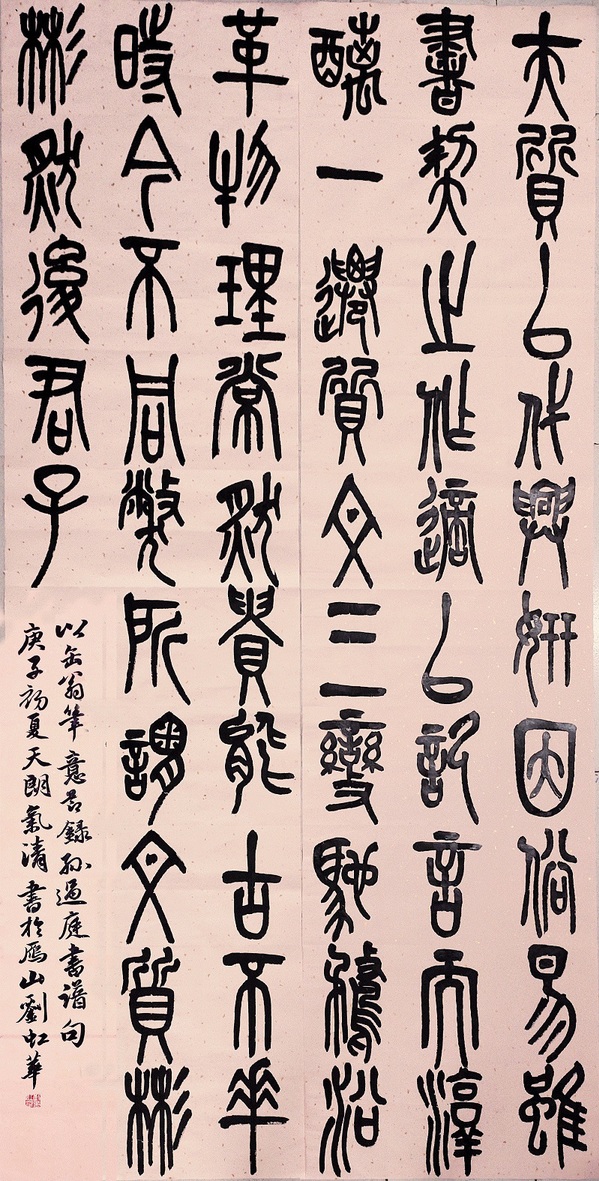 夫質以代興妍因俗易雖
書契之作適以記言而淳
醨一遷質文三變馳騖沿
革物理常然貴能古不乖
時今不同弊所謂文質彬
彬然後君子
以缶翁筆意节錄孫過庭書譜句
庚子初夏天朗氣清書於鴈山劉虹華